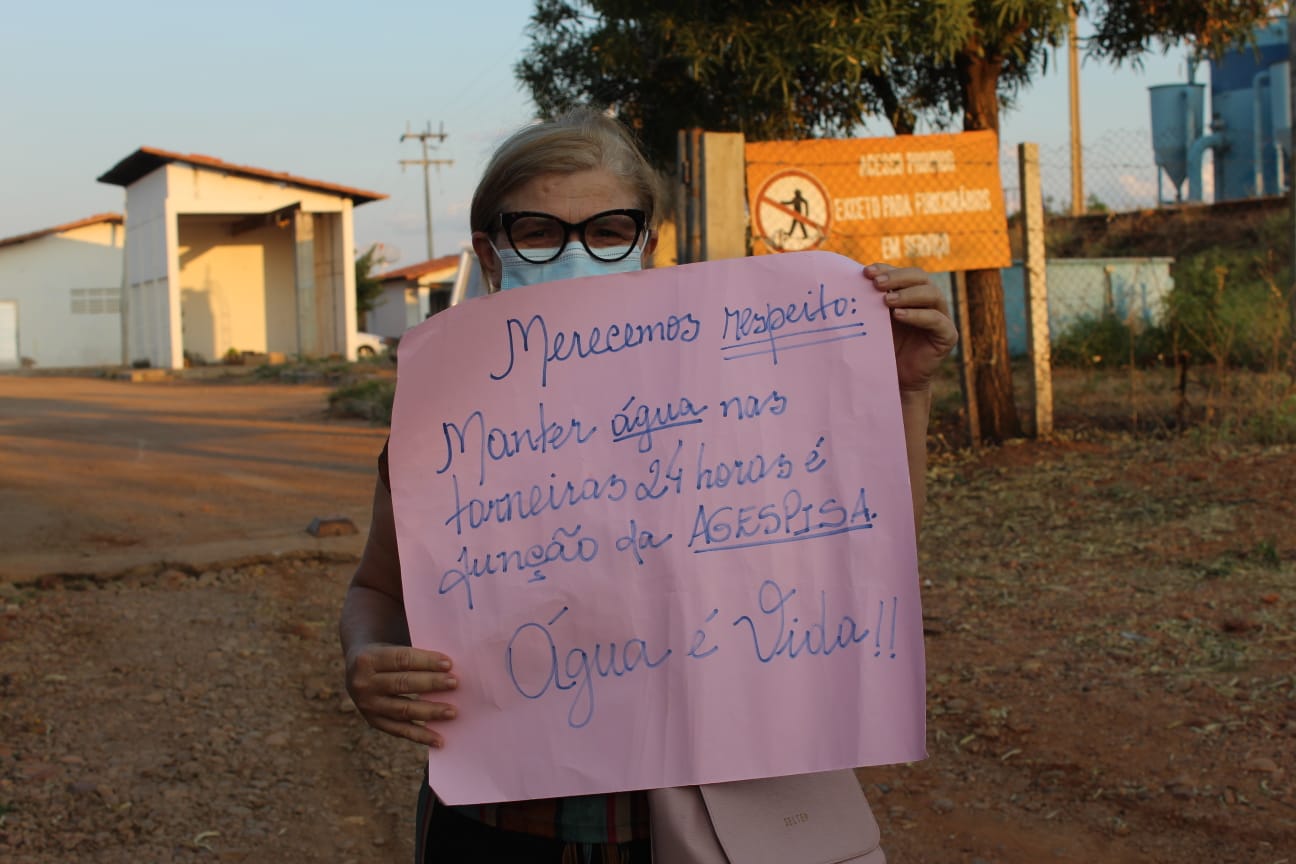 ACESSO PROIBIDO
EXCETO PARA FUNCIONÁRIOS
EM SERVIÇO
Merecemos respeito:
Manter água nas
torneiras 24 horas é
função da AGESPISA.
Água é Vida!!